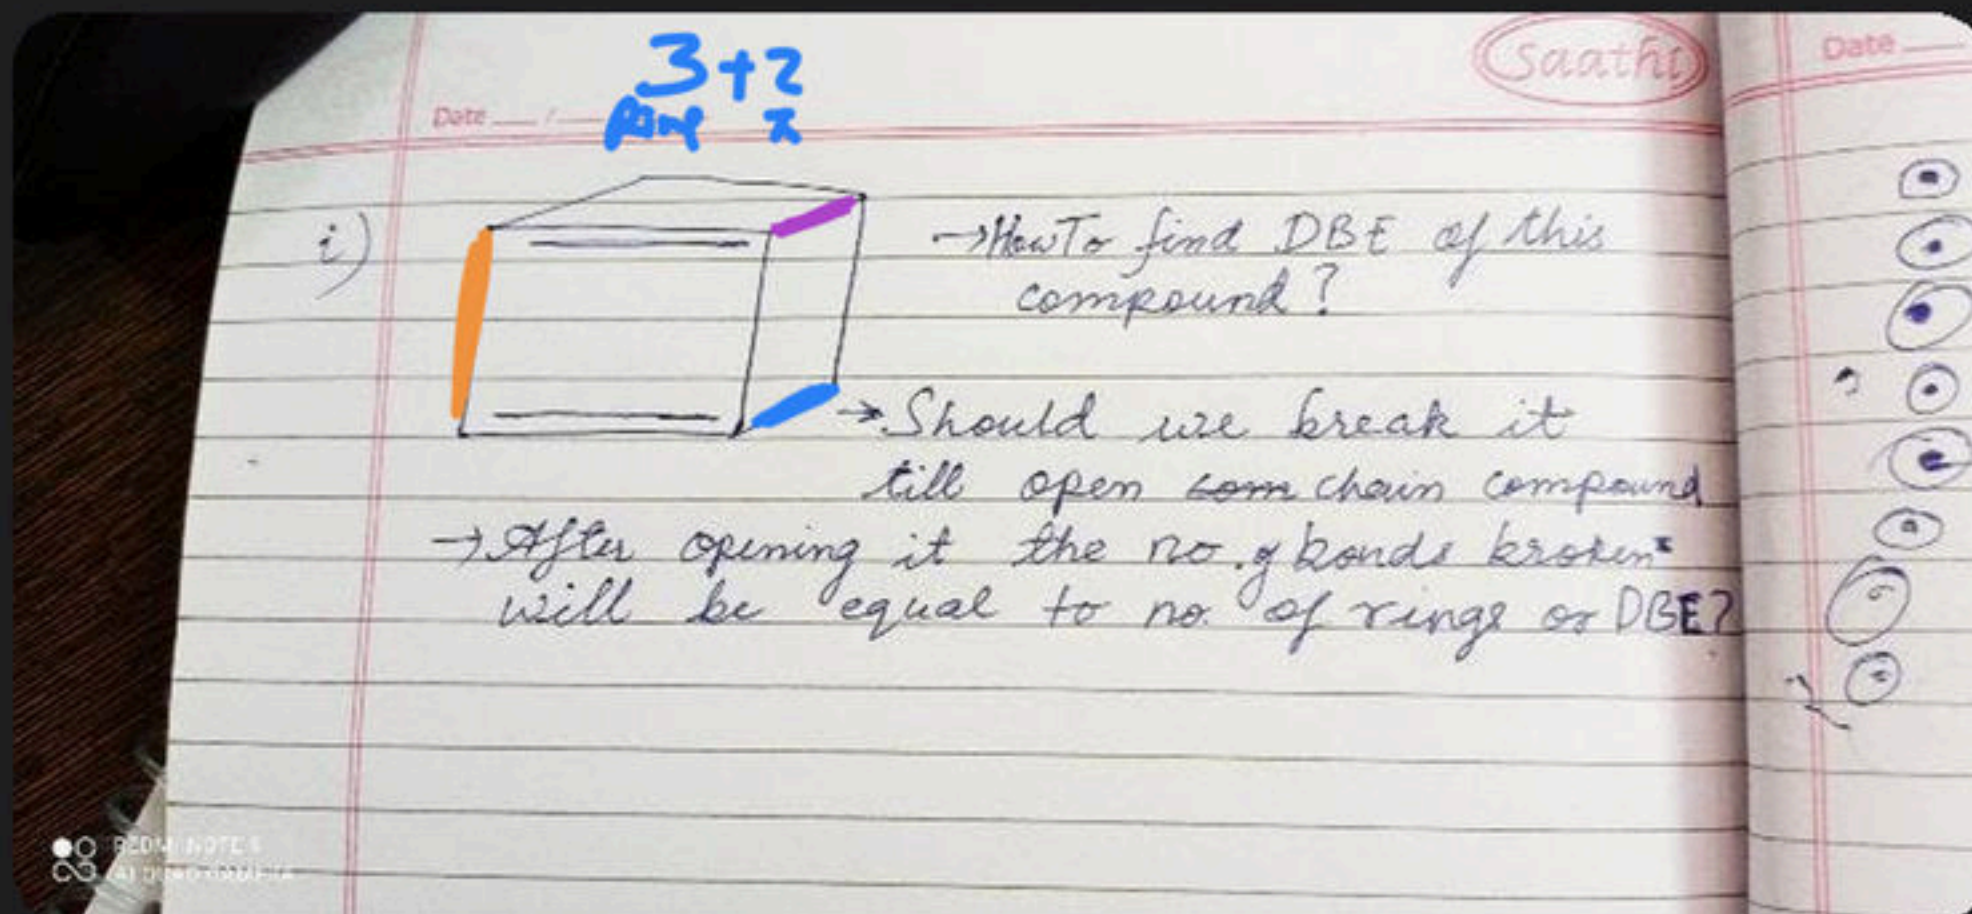 3+2
Ring π
Saathi
Date / 
Date
i)
→How To find DBE of this
compound?
→Should we break it
till open com chain compound
→After opening it the no. of bonds broken
will be equal to no. of rings or DBE?
REDMI NOTE 8
AI QUAD CAMERA